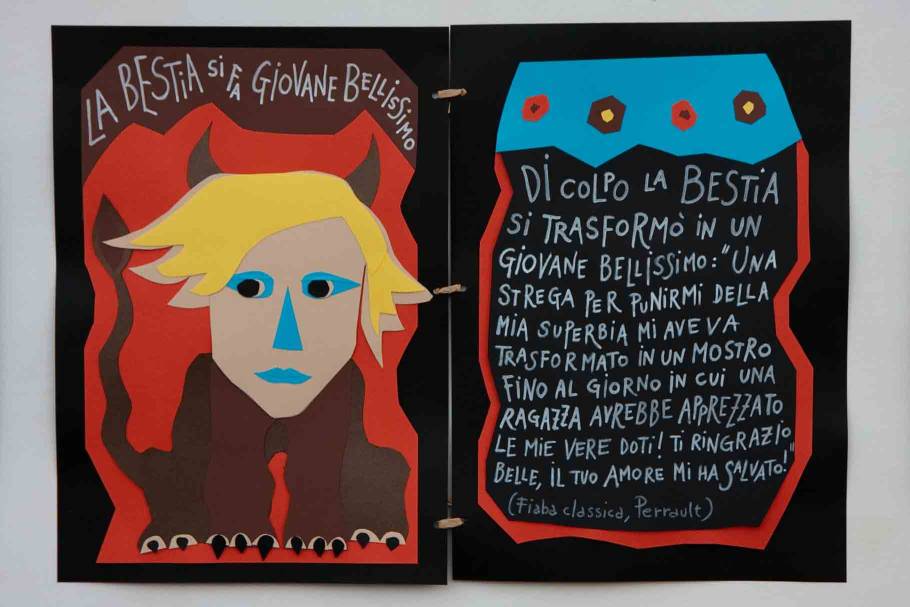 LA BESTiA Si FA GiOVANE BELLiSSiMO
Di COLPO LA BESTiA
Si TRASFORMÒ iN UN
GiOVANE BELLiSSiMO: "UNA
STREGA PER PUNiRMi DELLA
MiA SUPERBiA Mi AVEVA
TRASFORMATO iN UN MOSTRO
FiNO AL GiORNO iN CUi UNA
RAGAZZA AVREBBE APPREZZATO
LE MiE VERE DOTi! Ti RiNGRAZiO
BELLE, iL TUO AMORE Mi HA SALVATO!"
(Fiaba classica, Perrault)